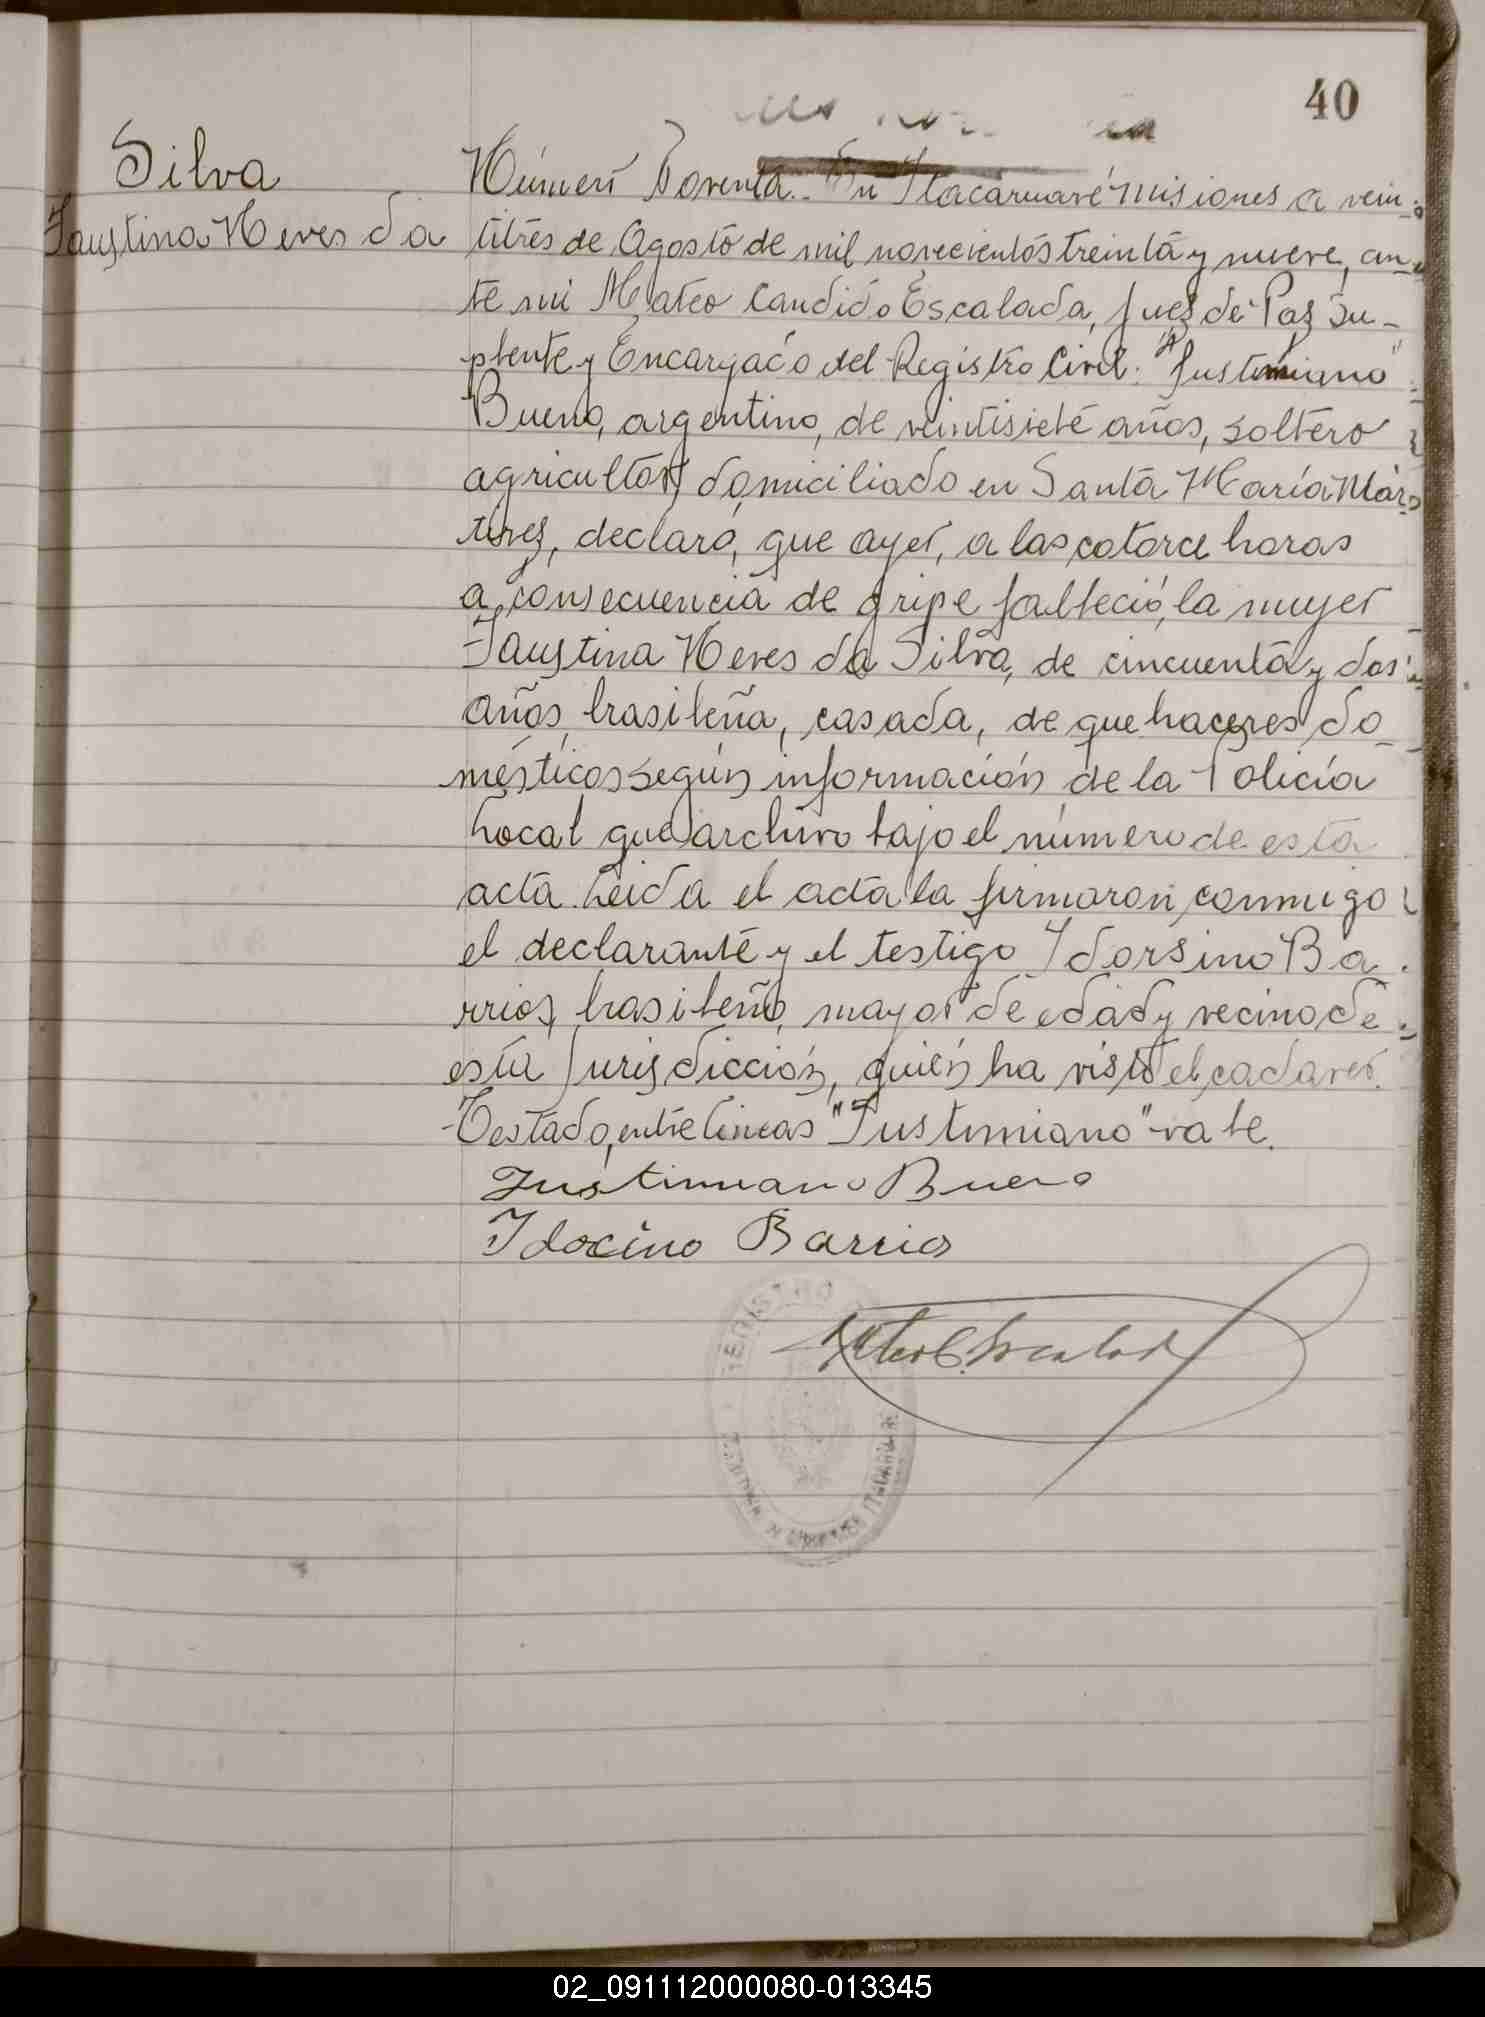 40
Silva
Faustina Neves da
Número Noventa.. En Itacaruaré Misiones a vein-
titrés de Agosto de mil novecientos treinta y nueve, an-
te mi Mateo Candido Escalada, Juez de Paz Su-
plente y Encargado del Registro Civil. "Justimiano"
Bueno, argentino, de veintisiete años, soltero
agricultor, domiciliado en Santa María Már-
tires, declaro, que ayer, a las catorce horas
a consecuencia de gripe falleció, la mujer
Faustina Neves da Silva, de cincuenta y dos
años, brasileña, casada, de que haceres do-
mésticos según información de la Policía
Local que archivo bajo el número de esta
acta. Leida el acta la firmaron conmigo
el declarante y el testigo Idorsino Ba-
rrios, brasileño, mayor de edad y vecino de
esta Jurisdicción, quién ha visto el cadaver.
Testado, entre lineas "Justimiano" vale.
Justimiano Bueno
Idocino Barrios
Mateo C. Escalada
REGISTRO
02_091112000080-013345